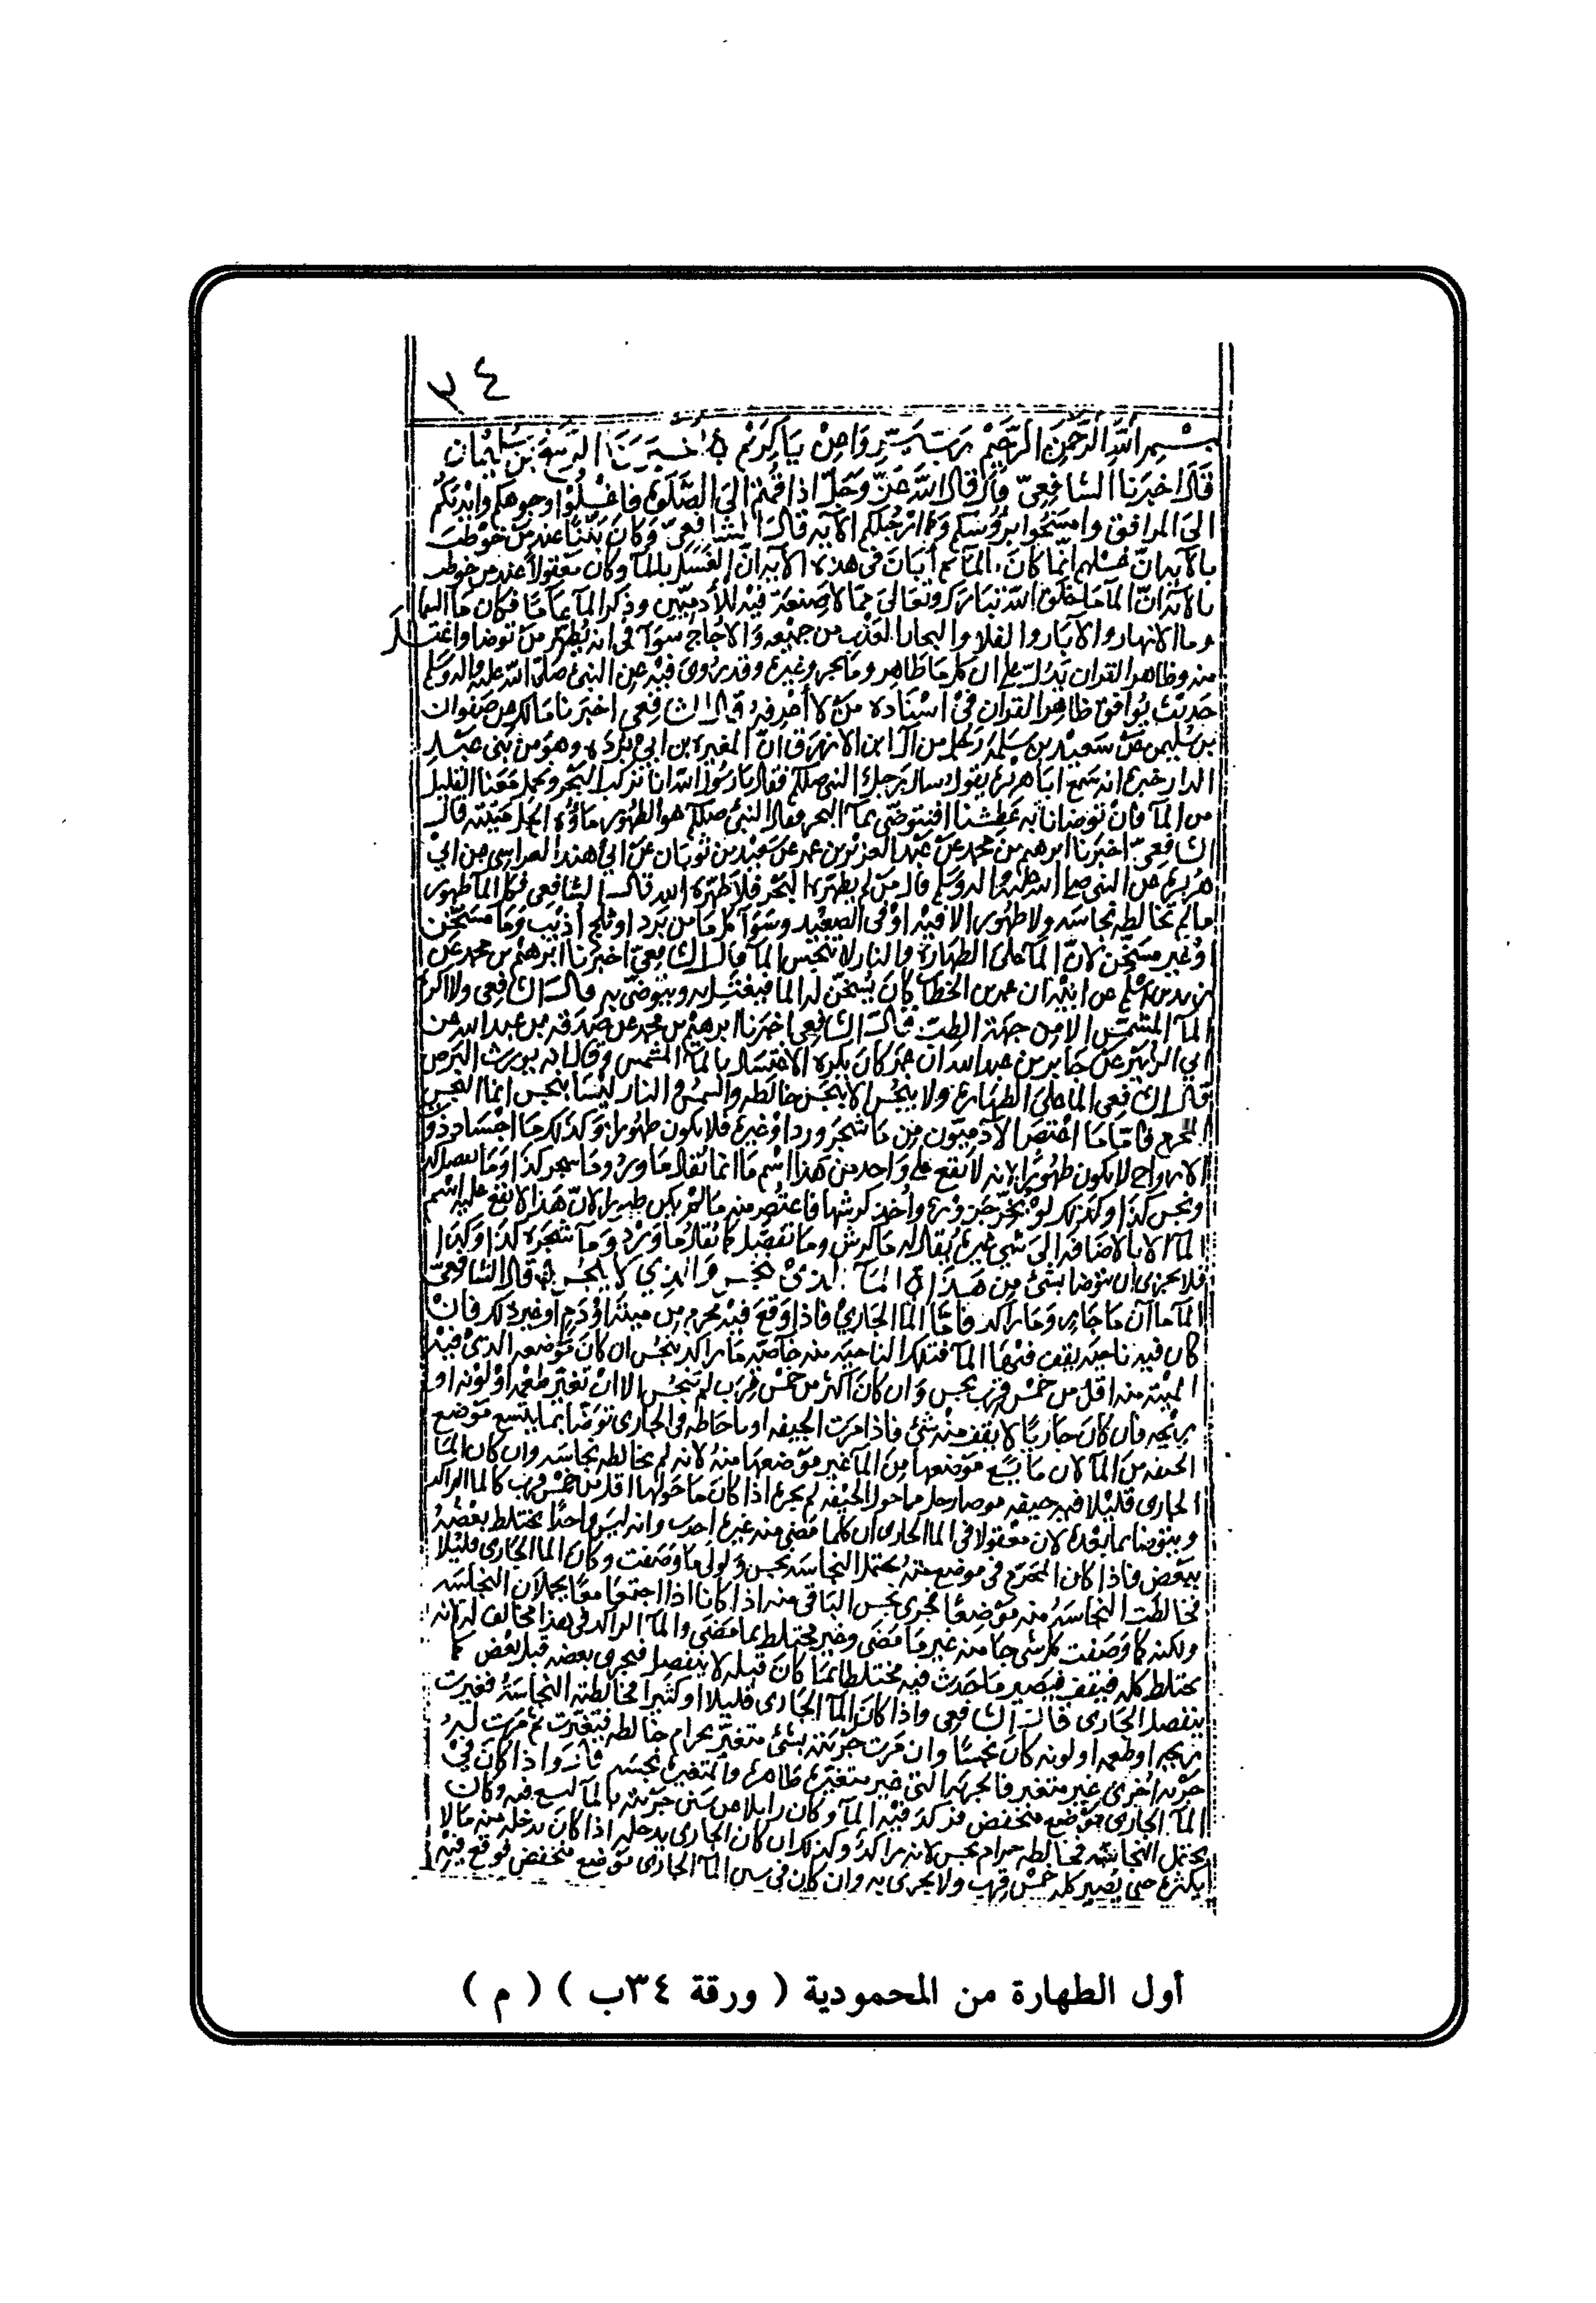 ٣٤
بسم الله الرحمن الرحيم رب يسر واعن يا كريم أخبرنا الربيع بن سليمان
قال اخبرنا الشافعي قال قال الله عز وجل اذا قمتم الى الصلوة فاغسلوا وجوهكم وايديكم
الى المرافق وامسحوا برؤسكم وارجلكم الآيه قال الشافعي وكان بينا عند من خوطب
بالآيه ان غسلهم انما كان بالمآ ثم أبان في هذه الآيه ان الغسل بالمآ وكان معقولا عند من خوطب
بالآيه ان المآ ما خلق الله تبارك وتعالى مما لا صنعة فيه للآدميين وذكر المآ عآما فكان مآ السما
وما الانهار والآبار والقلات والبحار العذب من جميعه والاجاج سوآ في انه يطهر من توضا واغتسل
منه وظاهر القران يدل على ان كل ما طاهر وما بحر وغيره وقد روى فيه عن النبي صلى الله عليه واله وسلم
حديث يوافق ظاهر القران في اسناده من لا أعرفه قال الشافعي اخبرنا مالك عن صفوان
بن سليم عن سعيد بن سلمة رجل من آل ابن الازرق ان المغيره بن ابي برده وهو من بني عبد
الدار خبره انه سمع ابا هريره يقول سال رجل النبي صلعم فقال يا رسول الله انا نركب البحر ونحمل معنا القليل
من المآ فان توضانا به عطشنا افنتوضى بمآ البحر فقال النبي صلعم هو الطهور ماؤه الحل ميتته قال
الشافعي اخبرنا ابرهيم بن محمد عن عبد العزيز بن عمر عن سعيد بن ثوبان عن ابي هند الفراسي عن ابي
هريره عن النبي صلى الله عليه واله وسلم قال من لم يطهره البحر فلا طهره الله قال الشافعي فكل المآ طهور
ما لم تخالطه نجاسه ولا طهور الا فيه او في الصعيد وسوآ كل ما من برد او ثلج أذيب وما مسخن
او غير مسخن لان المآ على الطهارة والنار لا تنجس المآ قال الشافعي اخبرنا ابرهيم بن محمد عن
زيد بن اسلم عن ابيه ان عمر بن الخطاب كان يسخن له الما فيغتسل به ويتوضى به قال الشافعي ولا اكره
المآ المشمس الا من جهة الطب قال الشافعي اخبرنا ابرهيم بن محمد عن صدقه بن عبد الله عن
ابي الزبير عن جابر بن عبد الله ان عمر كان يكره الاغتسال بالمآ المشمس وقال انه يورث البرص
قال الشافعي الما على الطهاره ولا ينجس الا بنجس خالطه والشمس والنار ليسا بنجس انما النجس
المحرم فاما ما اعتصر الآدميون من ما شجر ورد او غيره فلا يكون طهورا وكذلك ما اجساد ذوات
الارواح لا يكون طهورا لانه لا يقع على واحد من هذا اسم ما انما يقال ما ورد وما شجر كذا وما مفصل كذا
وجسد كذا وكذلك لو نحر جزورا واخذ كرشها فاعتصر منه ما لم يكن طهورا لان هذا لا يقع عليه اسم
المآ الا بالاضافه الى شي غيره يقال له ما كرش وما مفصل كما يقال ما ورد ومآ شجره كذا وكذا
فلا يجزى ان يتوضا بشئ من هذا المآ الذي ينجس والذي لا ينجس قال الشافعي
المآ ماآن ما جار وما راكد فاما الما الجاري فاذا وقع فيه محرم من ميتة او دم او غير ذلك فان
كان فيه ناحيه يقف فيها المآ فتلك الناحيه منه خاصه ما راكد ينجس ان كان موضعه الذي فيه
الميته منه اقل من خمس قرب نجس وان كان اكثر من خمس قرب لم ينجس الا ان تغير طعمه او لونه او
ريحه فان كان جاريا لا يقف منه شئ فاذا مرت الجيفه او ما خالطه في الجارى توضا بما يتبع موضع
الجيفه من المآ لان ما يتبع موضعها من المآ غير موضعها منه لانه لم يخالطه نجاسه وان كان الما
الجارى قليلا فيه جيفه فتوضا رجل مما حول الجيفه لم يجزه اذا كان ما حولها اقل من خمس قرب كالما الراكد
ويتوضا بما بعده لان معقولا في الما الجارى ان كلما مضى منه غير ما حدث وانه ليس واحدا يختلط بعضه
ببعض فاذا كان المحرم في موضع منه يحتمل النجاسه نجس ولولا ما وصفت وكان الما الجارى قليلا
فخالطت النجاسة منه موضعا فجرى نجس الباقى منه اذا كانا اذا اجتمعا معا يحملان النجاسه
ولكنه كما وصفت كل شي جا منه غير ما مضى وغير مختلط بما مضى والمآ الراكد في هذا مخالف له لانه
يختلط كله فيقف فيصير ما حدث فيه مختلطا بما كان قبله لا ينفصل فيجرى بعضه قبل بعض كما
ينفصل الجارى قال الشافعي واذا كان المآ الجارى قليلا او كثيرا فخالطته النجاسة فغيرت
ريحه او طعمه او لونه كان نجسا وان مرت جريته بشئ متغير بحرام خالطه فتغيرت ثم مرت به
جريه اخرى غير متغيره فالجريه التي غير متغيره طاهره والمتغيره نجسه قال واذا كان في
المآ الجارى موضع منخفض فركد فيه المآ وكان زايلا عن سنن جريته بالمآ يستنقع فيه وكان
يحتمل النجاسه فخالطه حرام نجس لانه راكد وكذلك ان كان الجارى يدخله اذا كان يدخله منه ما لا
يكثره حتى يصير كله خمس قرب ولا يجرى به وان كان في سنن المآ الجارى موضع منخفض فوقع فيه
أول الطهارة من المحمودية ( ورقة ٣٤ب ) ( م )